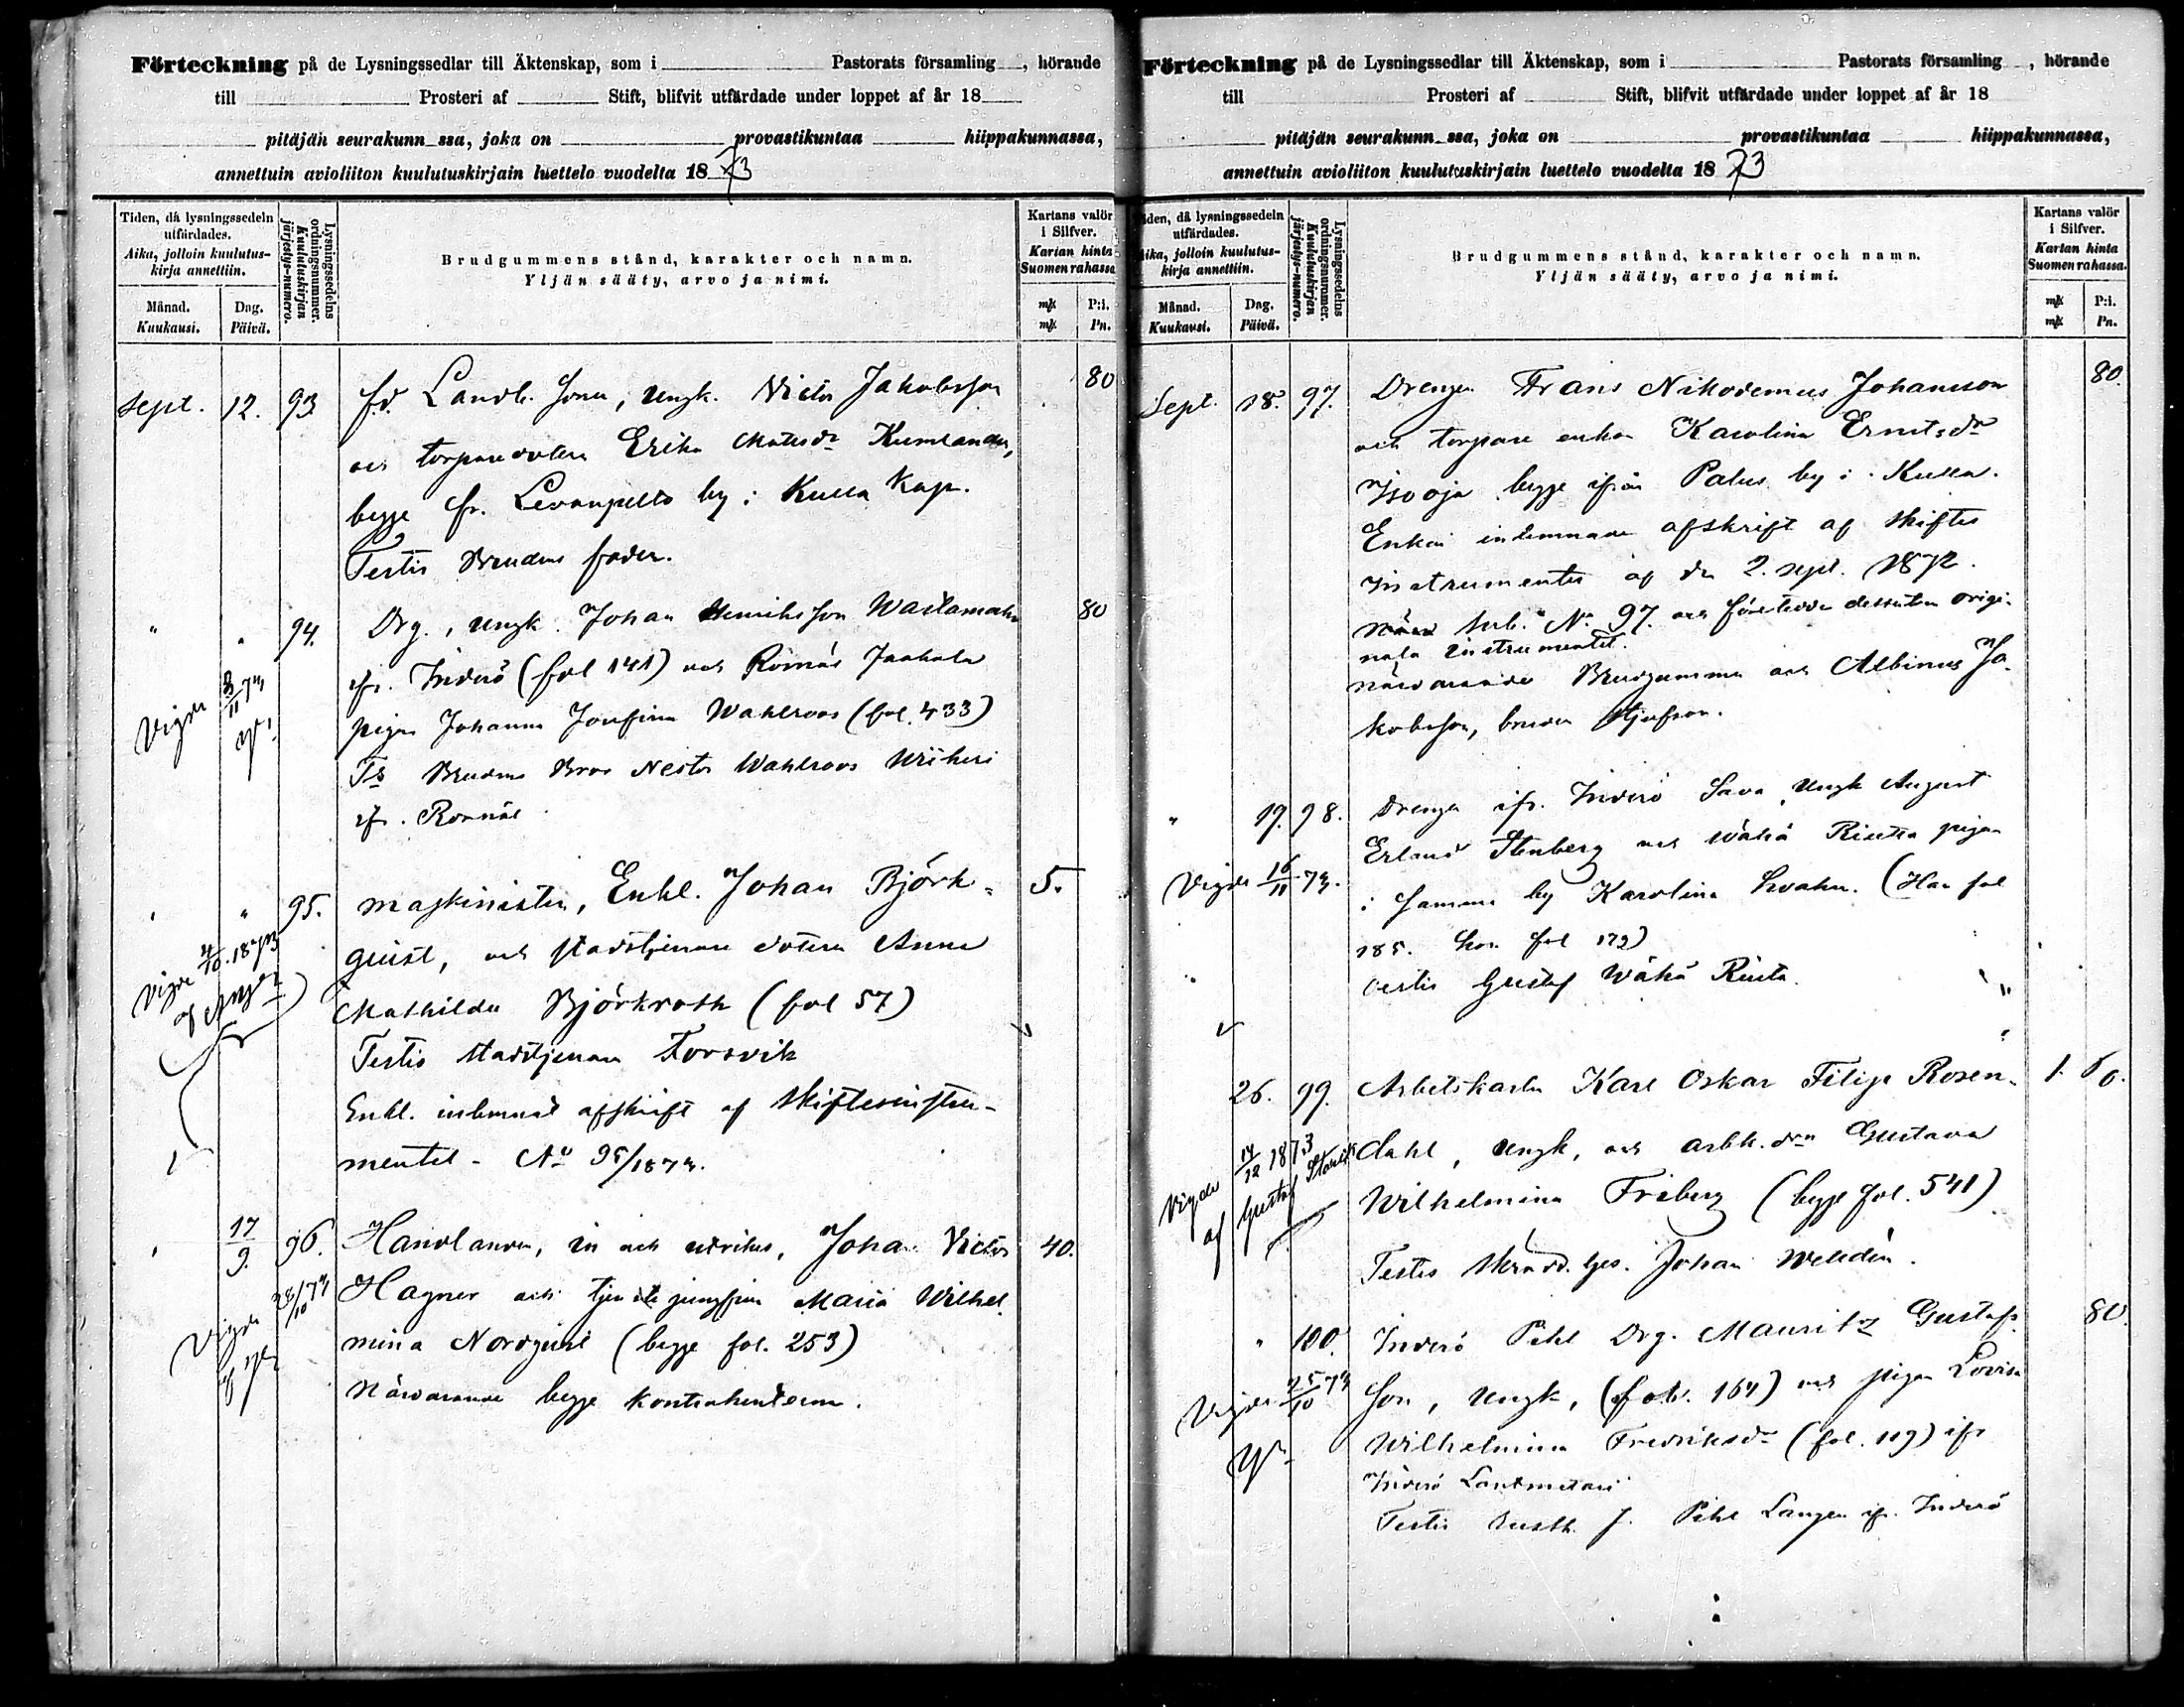 Förteckning på de Lysningssedlar till Äktenskap, som i Pastorats församling, hörande
till Prosteri af Stift, blifvit utfärdade under loppet af år 18
pitäjän seurakunn ssa, joka on provastikuntaa hiippakunnassa,
annettuin avioliiton kuulutuskirjain luettelo vuodelta 1873
Tiden, då lysningssedeln utfärdades.
Aika, jolloin kuulutus-kirja annettiin.
Månad.
Kuukausi.
Dag.
Päivä.
Lysningssedelns ordningsnummer.
Kuulutuskirjan järjestys-numero.
Brudgummens stånd, karakter och namn.
Yljän sääty, arvo ja nimi.
Kartans valör i Silfver.
Kartan hinta Suomen rahassa.
mk P:i.
mk Pn.
Sept. 12. 93 fd. Landb. Sonen, Ungk. Victor Jakobsson 80
och torparedottern Erika Matsdr Kumlander,
begge fr. Levanpelto by i Kulla Kap.
Testis Brudens fader.
" " 94. Drg., Ungk. Johan Henriksson 80
ifr. Inderö (fol 141) och Romäs Jaakola
pigan Johanna Josefina Wahlroos (fol. 433)
Vigde 3/11 73
Ts Brudens Bror Nestor Wahlroos
ifr. Romäs
" " 95. maskinisten, Enkl. Johan Björk- 5.
quist, och stadstjenare dottern Anna
Mathilda Björkroth (fol 57)
Vigde 4/10.1873
af
Testis stadstjenaren Forsvik
Enkl. inlemnat afskrift af skiftesinstru-
mentet - No 95/1873.
" 17/9. 96. Handlanden, in och utrikes, Johan Victor 40.
Hagner och tjenstejungfrun Maria Wilhel
mina Nordquist (begge fol. 253)
Vigde 28/10 73
af
Närvarande begge kontrahenterna.
Förteckning på de Lysningssedlar till Äktenskap, som i Pastorats församling, hörande
till Prosteri af Stift, blifvit utfärdade under loppet af år 18
pitäjän seurakunn ssa, joka on provastikuntaa hiippakunnassa,
annettuin avioliiton kuulutuskirjain luettelo vuodelta 1873
Tiden, då lysningssedeln utfärdades.
Aika, jolloin kuulutus-kirja annettiin.
Månad.
Kuukausi.
Dag.
Päivä.
Lysningssedelns ordningsnummer.
Kuulutuskirjan järjestys-numero.
Brudgummens stånd, karakter och namn.
Yljän sääty, arvo ja nimi.
Kartans valör i Silfver.
Kartan hinta Suomen rahassa.
mk P:i.
mk Pn.
Sept. 18. 97. Drengen Frans Nikodemus Johansson 80.
och torpare enkan Karolina Ernstsdr
Iso oja begge ifrån Palus by i Kulla.
Enkan inlemnade afskrift af skiftes
Instrumentet af den 2. sept. 1872.
sub. No 97. och företedde dessutom origi-
nala instrumentet.
närvarande Brudgummen och Albinus Ja-
kobsson, brudens styfson.
" 19. 98. Drengen ifr. Inderö Sava, Ungk August
Erland Stenberg och Wähä Riutta pigan
i samma by Karolina Svahn. (Han fol
185. hon fol 179)
Vigde 16/11 73.
Testis Gustaf Wähä Riuta.
26. 99. Arbetskarln Karl Oskar Filip Rosen- 1. 60.
dahl, Ungk, och arbk. drn Gustava
Wilhelmina Friberg (begge fol. 541)
Vigde 14/12 1873
af Gustaf
Testis Skrädd. ges. Johan Welldén.
" 100. Inderö Pihl Drg. Mauritz Gustafs 80.
son, Ungk, (fol. 164) och pigan Lovisa
Wilhelmina Fredriksdr (fol. 119) ifr
Inderö Lantmetari
Vigde 25/10 73
Testis J. Pihl Langen ifr. Inderö